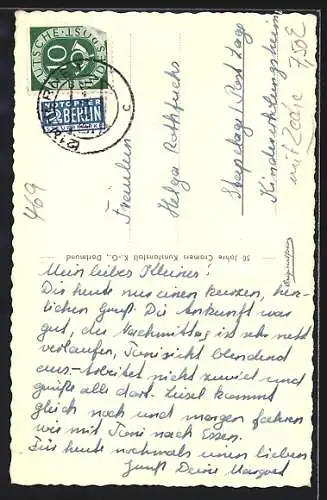 DEUTSCHE BUNDESPOST
10
NOTOPFER
2 BERLIN
STEUERMARKE
Fräulein
Helga Rothfuchs
Kindererholungsheim
469
7,50 €
50 Jahre Cramers Kunstanstalt K.-G., Dortmund
Mein liebes Kleines!
Dir heute nur einen kurzen, herz-
lichen Gruß. Die Ankunft war
gut, der Nachmittag ist sehr nett
verlaufen, Toni sieht blendend
aus. Arbeitet nicht zuviel und
grüße alle dort. Liesel kommt
gleich noch und morgen fahren
wir mit Toni nach Essen.
Für heute nochmals einen lieben
Gruß Deine Margret